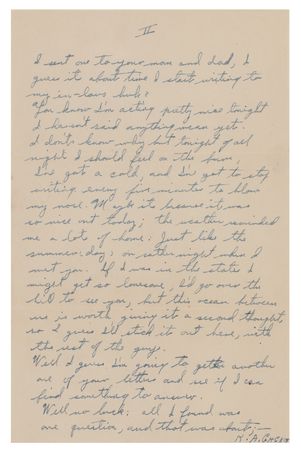 II
I sent one to your mom and dad, I
guess it about time I start writing to
my in-laws huh?
You know I'm acting pretty nice tonight
I haven't said anything mean yet.
I don't know why but tonight of all
night I should feel on the bum,
I've got a cold, and I've got to stop
writing every five minutes to blow
my nose. Maybe it because it was
so nice out today; the weather reminded
me a lots of home. Just like the
summer day; or rather night when I
met you. If I was in the states I
might get so lonesome, I'd go over the
hill to see you, but this ocean between
us is worth giving it a second thought,
so I guess I'll stick it out here, with
the rest of the guys.
Well I guess I'm going to get another
one of your letters and see if I can
find something to answer.
Well no luck; all I found was
one question, and that was about;—